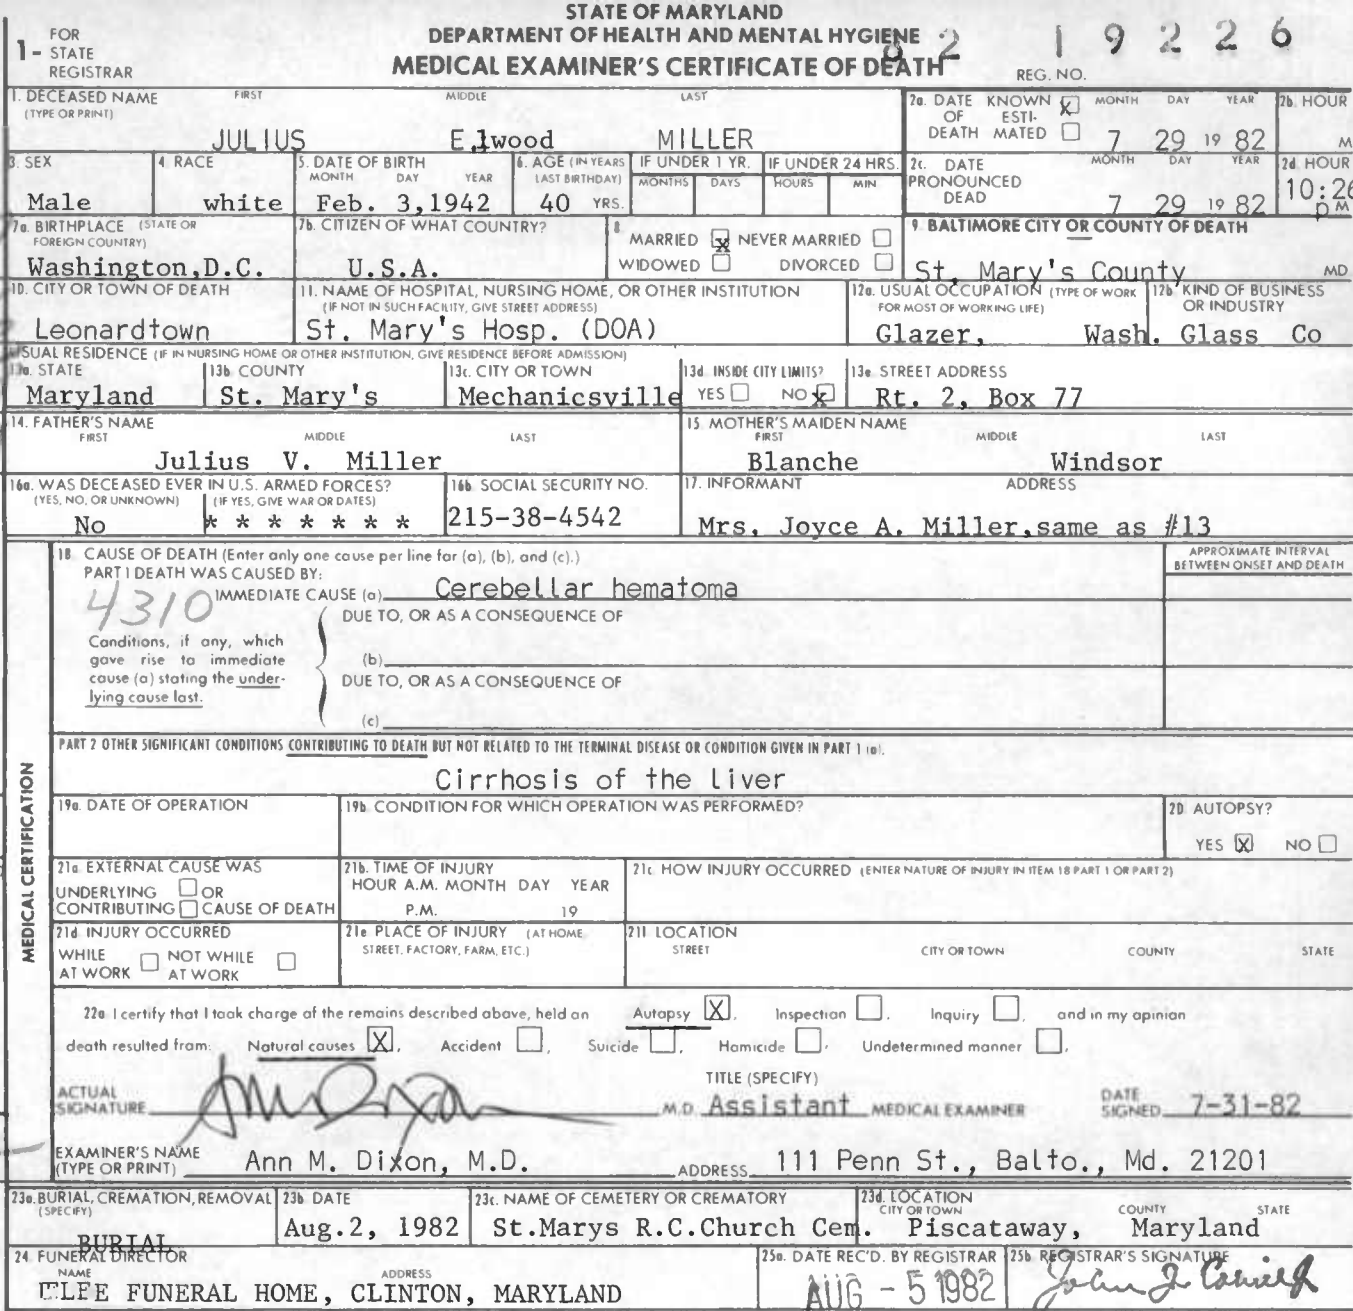 STATE OF MARYLAND
DEPARTMENT OF HEALTH AND MENTAL HYGIENE
MEDICAL EXAMINER'S CERTIFICATE OF DEATH
1- FOR STATE REGISTRAR
82 19226
REG. NO.
1. DECEASED NAME (TYPE OR PRINT) FIRST MIDDLE LAST
JULIUS Elwood MILLER
2a. DATE OF DEATH KNOWN X ESTIMATED MONTH DAY YEAR
7 29 19 82
2b. HOUR M
3. SEX
Male
4. RACE
white
5. DATE OF BIRTH MONTH DAY YEAR
Feb. 3,1942
6. AGE (IN YEARS LAST BIRTHDAY)
40 YRS.
IF UNDER 1 YR. MONTHS DAYS
IF UNDER 24 HRS. HOURS MIN
2c. DATE PRONOUNCED DEAD MONTH DAY YEAR
7 29 19 82
2d. HOUR
10:26 P M
7a. BIRTHPLACE (STATE OR FOREIGN COUNTRY)
Washington,D.C.
7b. CITIZEN OF WHAT COUNTRY?
U.S.A.
8. MARRIED X NEVER MARRIED
WIDOWED DIVORCED
9. BALTIMORE CITY OR COUNTY OF DEATH
St. Mary's County MD
10. CITY OR TOWN OF DEATH
Leonardtown
11. NAME OF HOSPITAL, NURSING HOME, OR OTHER INSTITUTION
(IF NOT IN SUCH FACILITY, GIVE STREET ADDRESS)
St. Mary's Hosp. (DOA)
12a. USUAL OCCUPATION (TYPE OF WORK FOR MOST OF WORKING LIFE)
Glazer,
12b. KIND OF BUSINESS OR INDUSTRY
Wash. Glass Co
USUAL RESIDENCE (IF IN NURSING HOME OR OTHER INSTITUTION, GIVE RESIDENCE BEFORE ADMISSION)
13a. STATE
Maryland
13b. COUNTY
St. Mary's
13c. CITY OR TOWN
Mechanicsville
13d. INSIDE CITY LIMITS?
YES NO X
13e. STREET ADDRESS
Rt. 2, Box 77
14. FATHER'S NAME
FIRST MIDDLE LAST
Julius V. Miller
15. MOTHER'S MAIDEN NAME
FIRST MIDDLE LAST
Blanche Windsor
16a. WAS DECEASED EVER IN U.S. ARMED FORCES?
(YES, NO, OR UNKNOWN) (IF YES, GIVE WAR OR DATES)
No * * * * * * *
16b. SOCIAL SECURITY NO.
215-38-4542
17. INFORMANT ADDRESS
Mrs. Joyce A. Miller,same as #13
MEDICAL CERTIFICATION
18. CAUSE OF DEATH (Enter only one cause per line for (a), (b), and (c).)
PART 1 DEATH WAS CAUSED BY:
APPROXIMATE INTERVAL BETWEEN ONSET AND DEATH
4310
IMMEDIATE CAUSE (a) Cerebellar hematoma
DUE TO, OR AS A CONSEQUENCE OF
Conditions, if any, which
gave rise to immediate
cause (a) stating the under-
lying cause last.
(b)
DUE TO, OR AS A CONSEQUENCE OF
(c)
PART 2 OTHER SIGNIFICANT CONDITIONS CONTRIBUTING TO DEATH BUT NOT RELATED TO THE TERMINAL DISEASE OR CONDITION GIVEN IN PART 1 (a).
Cirrhosis of the Liver
19a. DATE OF OPERATION
19b. CONDITION FOR WHICH OPERATION WAS PERFORMED?
20. AUTOPSY?
YES X NO
21a. EXTERNAL CAUSE WAS
UNDERLYING OR
CONTRIBUTING CAUSE OF DEATH
21b. TIME OF INJURY
HOUR A.M. MONTH DAY YEAR
P.M. 19
21c. HOW INJURY OCCURRED (ENTER NATURE OF INJURY IN ITEM 18 PART 1 OR PART 2)
21d. INJURY OCCURRED
WHILE AT WORK NOT WHILE AT WORK
21e. PLACE OF INJURY (AT HOME, STREET, FACTORY, FARM, ETC.)
21f. LOCATION
STREET CITY OR TOWN COUNTY STATE
22a. I certify that I took charge of the remains described above, held an Autopsy X, Inspection , Inquiry , and in my opinion
death resulted from: Natural causes X, Accident , Suicide , Homicide , Undetermined manner .
ACTUAL SIGNATURE Ann Dixon M.D.
TITLE (SPECIFY)
Assistant MEDICAL EXAMINER
DATE SIGNED 7-31-82
EXAMINER'S NAME (TYPE OR PRINT) Ann M. Dixon, M.D.
ADDRESS 111 Penn St., Balto., Md. 21201
23a. BURIAL, CREMATION, REMOVAL (SPECIFY)
BURIAL
23b. DATE
Aug.2, 1982
23c. NAME OF CEMETERY OR CREMATORY
St.Marys R.C.Church Cem.
23d. LOCATION
CITY OR TOWN COUNTY STATE
Piscataway, Maryland
24. FUNERAL DIRECTOR
NAME ADDRESS
LEE FUNERAL HOME, CLINTON, MARYLAND
25a. DATE REC'D. BY REGISTRAR
AUG - 5 1982
25b. REGISTRAR'S SIGNATURE
John J.